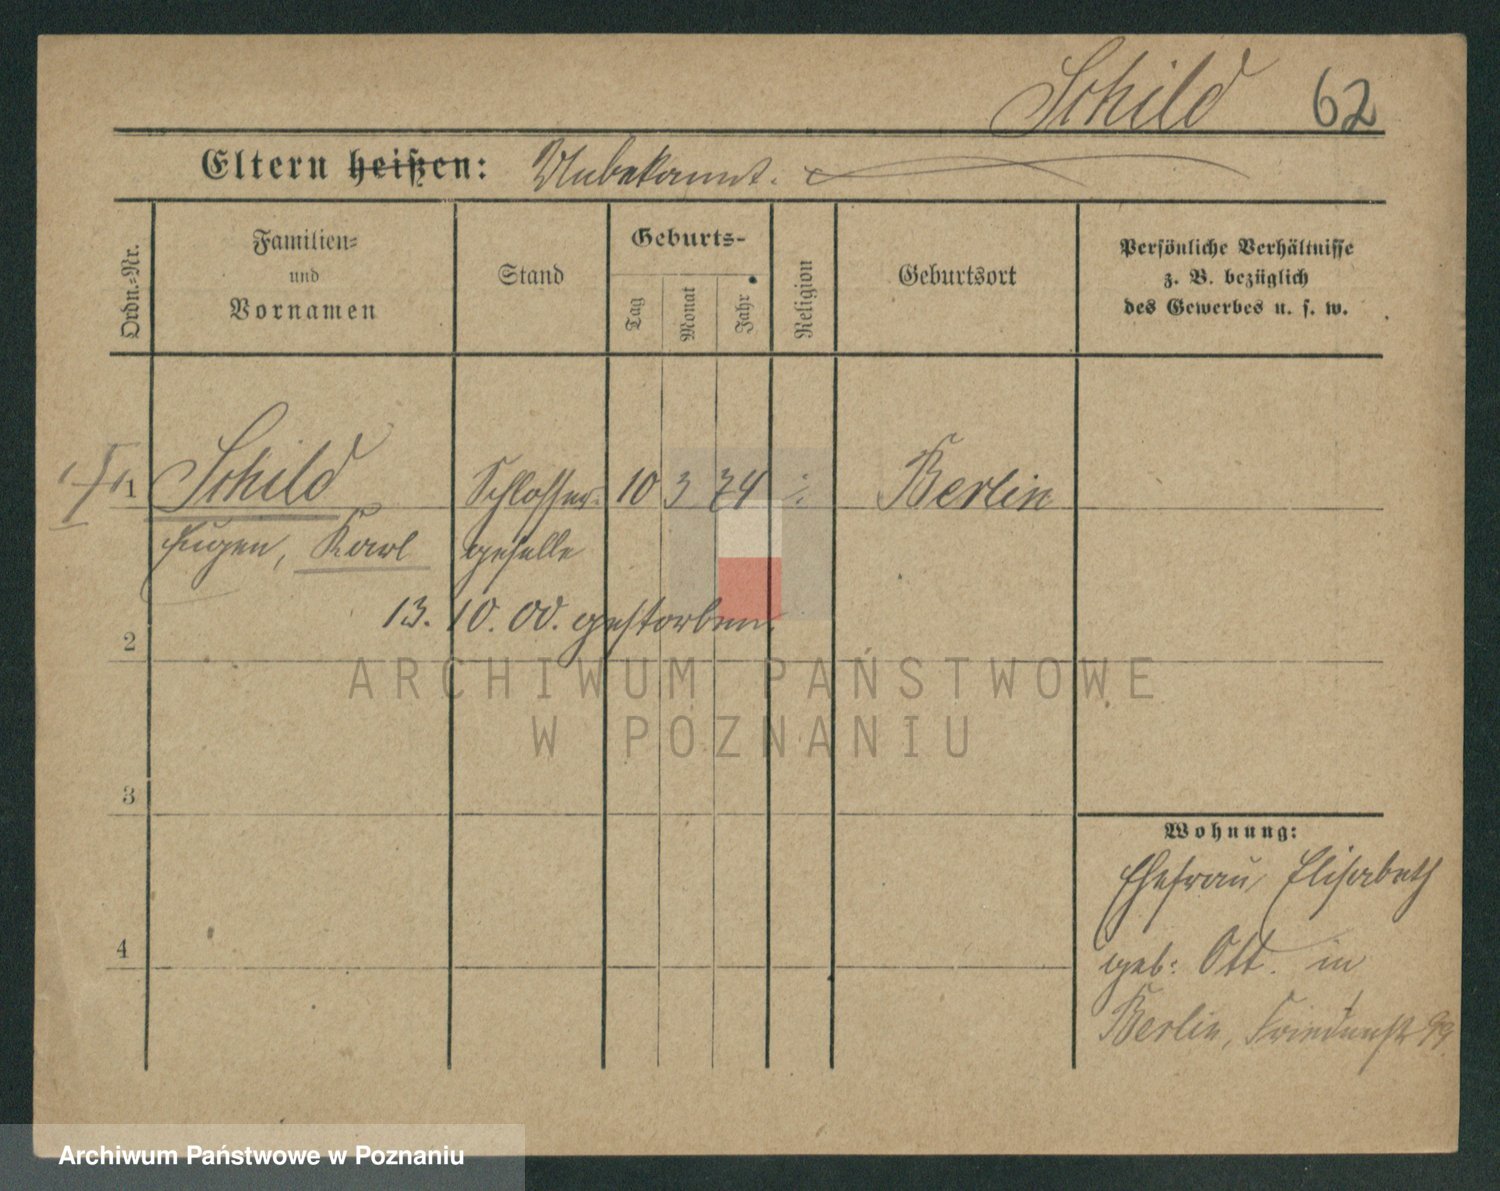 Schild 62
Eltern heißen: Unbekannt.
Ordn.-Nr.
Familien-
und
Vornamen
Stand
Geburts-
Tag
Monat
Jahr
Religion
Geburtsort
Persönliche Verhältnisse
z. B. bezüglich
des Gewerbes u. s. w.
1 Schild Schlosser- 10 3 74 Berlin
Eugen, Karl geselle
13. 10. 00. gestorben.
2
ARCHIWUM PAŃSTWOWE
W POZNANIU
3
Wohnung:
Ehefrau Elisabeth
4
geb: Ott. in
Berlin, Friedenstr 99
Archiwum Państwowe w Poznaniu